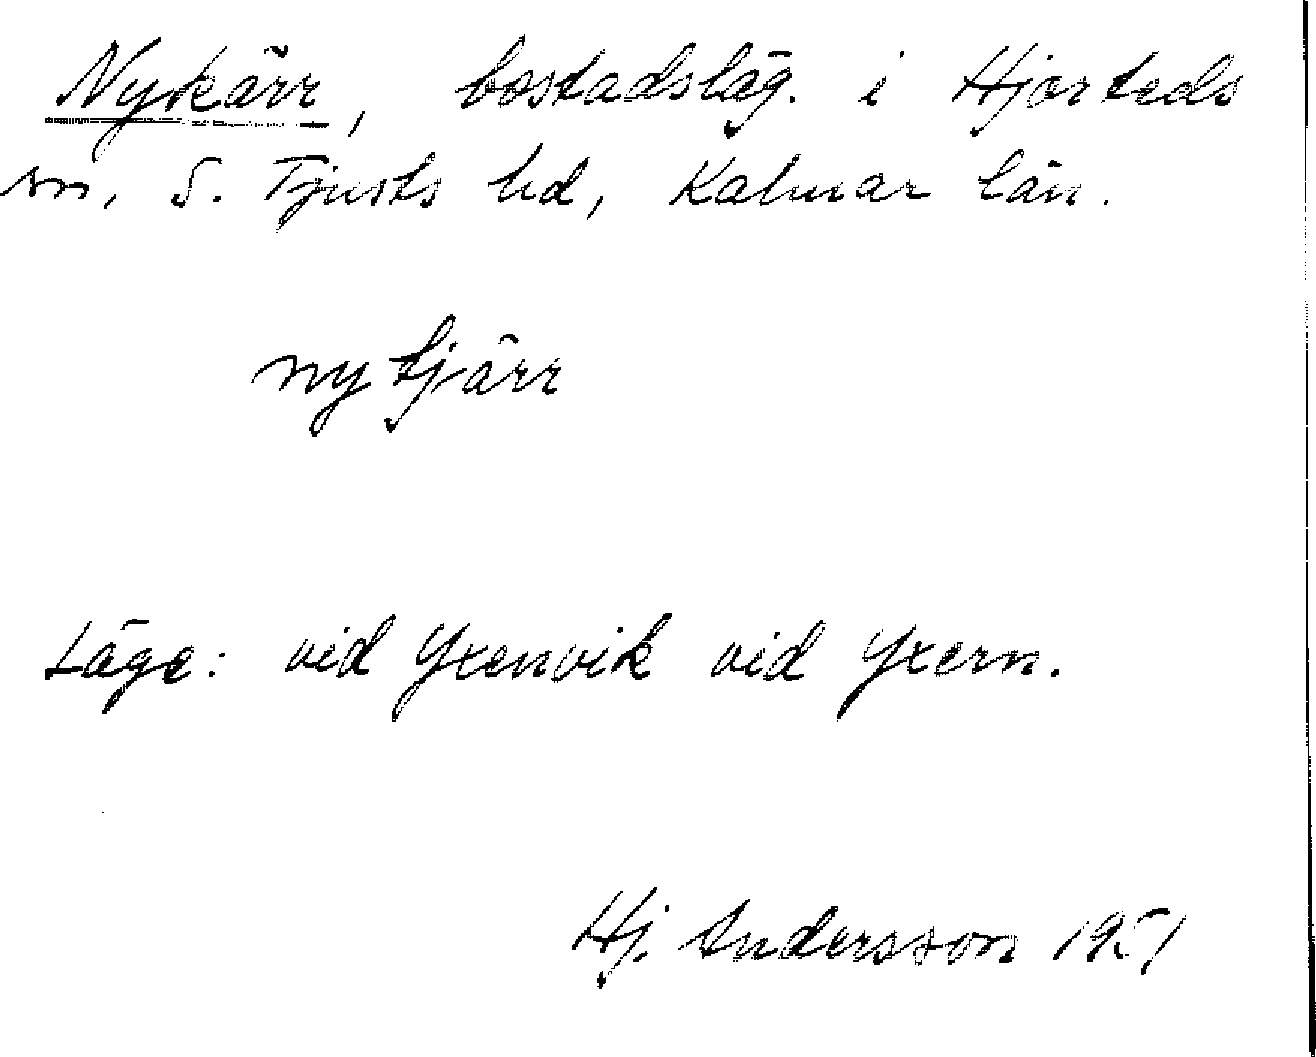 Nykärr, bostadsläg. i Hjorteds
sn, S. Tjusts hd, Kalmar län.
nytjärr
Läge: vid Yxenvik vid Yxern.
Hj. Andersson 1951